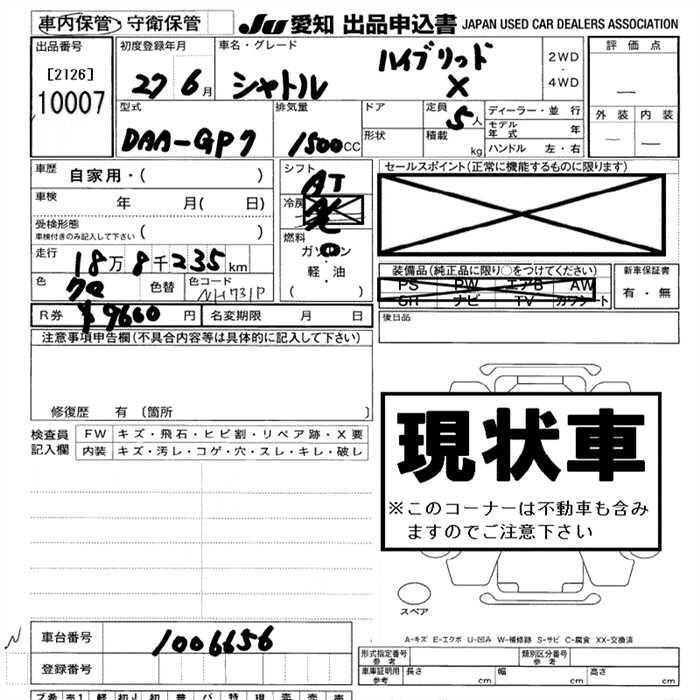 車内保管・守衛保管 JU 愛知 出品申込書 JAPAN USED CAR DEALERS ASSOCIATION
出品番号 [2126] 10007
初度登録年月 27 6月
車名・グレード シャトル ハイブリッド X
2WD・4WD
評価点 —
外装 — 内装 —
型式 DAA-GP7
排気量 1500cc
ドア
形状
定員 5人
積載 kg
ディーラー・並行
モデル年式 年
ハンドル 左・右
車歴 自家用・( )
車検 年 月( 日)
受検形態
車検付きのみ記入して下さい ( )
走行 18万8千235km
色 クロ 色替 色コード NH731P
シフト AT
冷房
燃料 ガソリン
軽・油
( )
セールスポイント(正常に機能するものに限ります)
装備品(純正品に限り○をつけてください)
PS PW エアB AW
SR ナビ TV カワシート
新車保証書
有・無
R券 ¥9660円 名変期限 月 日
後日品
注意事項申告欄(不具合内容等は具体的に記入して下さい)
修復歴 有 〔箇所 〕
検査員記入欄
FW キズ・飛石・ヒビ割・リペア跡・X要
内装 キズ・汚レ・コゲ・穴・スレ・キレ・破レ
現状車
※このコーナーは不動車も含み
ますのでご注意下さい
スペア
A-キズ E-エクボ U-凹み W-補修跡 S-サビ C-腐食 XX-交換済
N 車台番号 1006656
登録番号
形式指定番号 参考
類別区分番号 参考
車庫証明用 参考 長さ cm 幅 cm 高さ cm